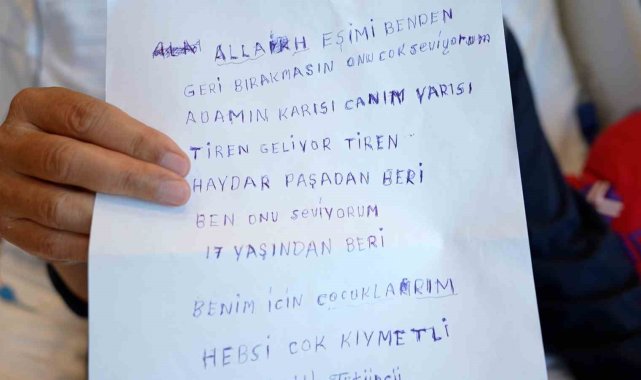 ALLAH EŞİMİ BENDEN
GERİ BIRAKMASIN ONU COK SEVİYORUM
ADAMIN KARISI CANIM YARISI
TİREN GELİYOR TİREN
HAYDAR PAŞADAN BERİ
BEN ONU SEVİYORUM
17 YAŞINDAN BERİ
BENİM İCİN ÇOCUKLARRIM
HEBSİ COK KIYMETLİ